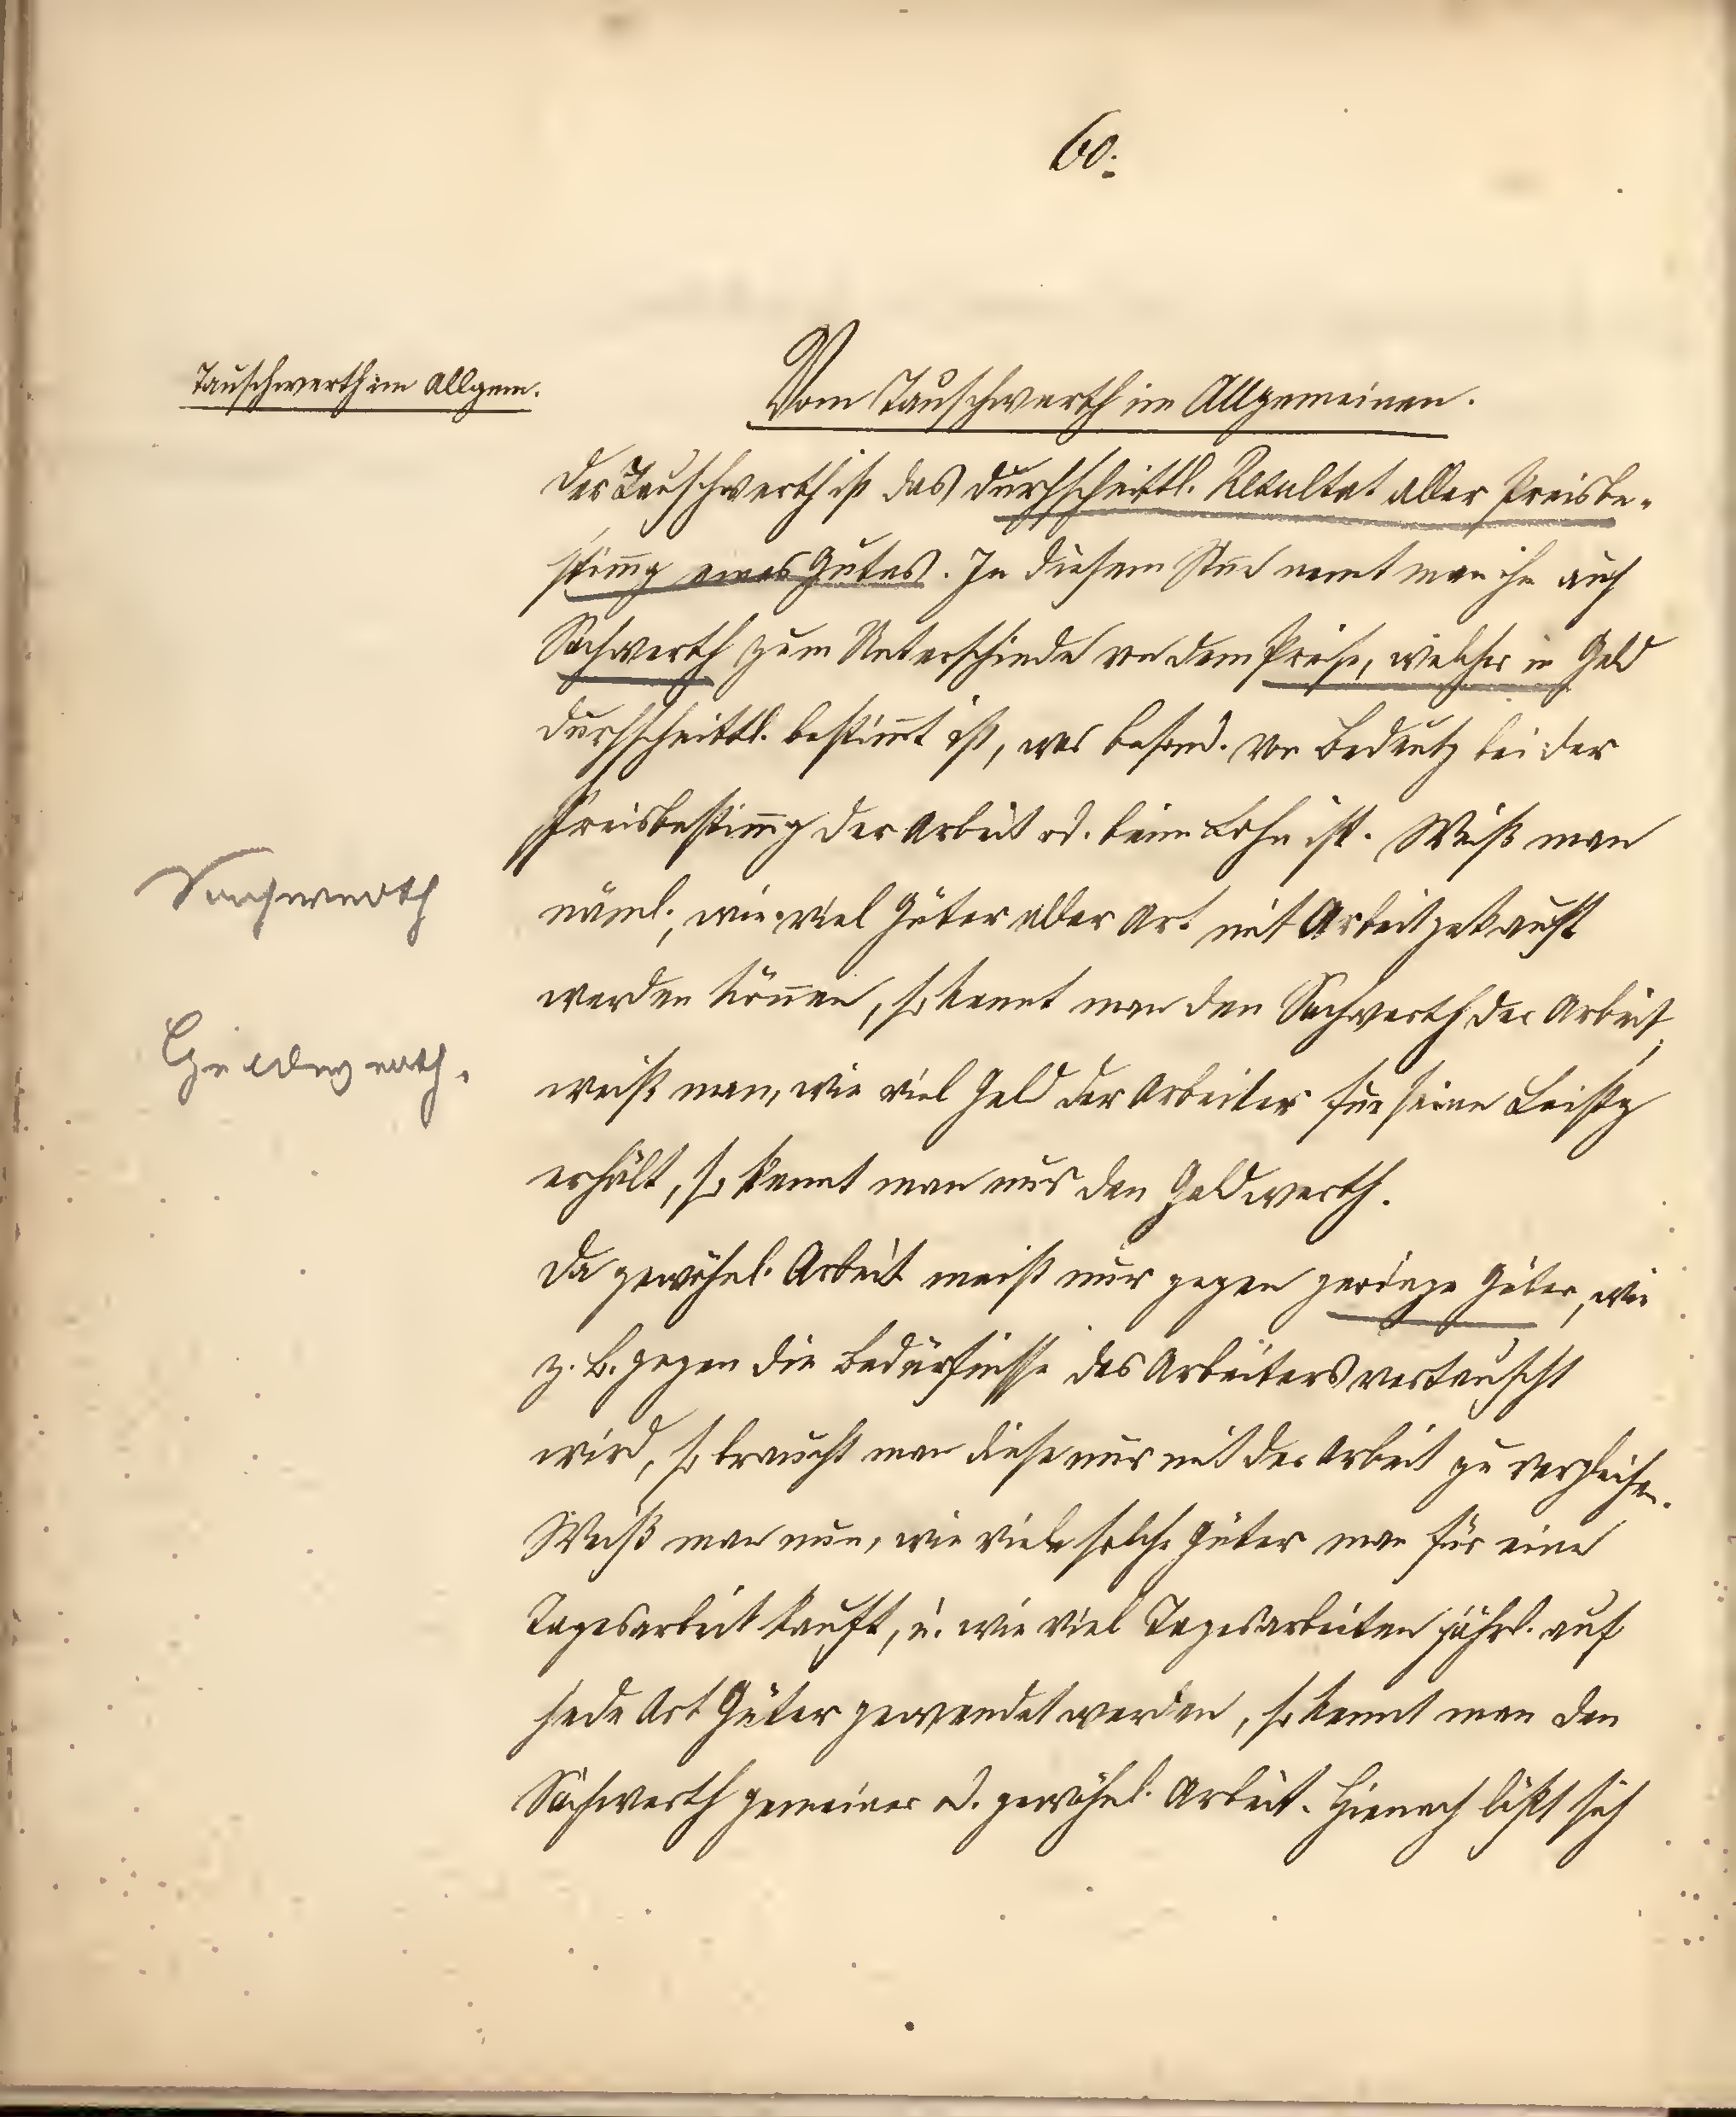 60.
Tauschwerth im Allgem.
Vom Tauschwerth im Allgemeinen.
Der Tauschwerth ist das durchschnittl. Resultat aller Preisbe-
stimg eines Gutes. In diesem Sinn nennt man ihn auch
Sachwerth zum Unterschiede von dem Preise, welcher in Geld
durchschnittl. bestimt ist, was besond. von Bedeutg bei der
Preisbestimg der Arbeit od. beim Lohn ist. Weiß man
Sachwerth
näml., wie viel Güter aller Art mit Arbeit gekauft
werden können, so kennt man den Sachwerth der Arbeit,
Geldwerth.
weiß man, wie viel Geld der Arbeiter für seine Leistg
erhält, so kennt man nur den Geldwerth.
Da gewöhnl. Arbeit meist nur gegen geringe Güter, wie
z. B. gegen die Bedürfnisse des Arbeiters vertauscht
wird, so braucht man diese nur mit der Arbeit zu vergleichen.
Weiß man nun, wie viele solche Güter man für eine
Tagesarbeit kauft, u. wie viel Tagesarbeiten jährl. auf
jede Art Güter gewendet werden, so kennt man den
Sachwerth gemeiner od. gewöhnl. Arbeit. Hienach läßt sich